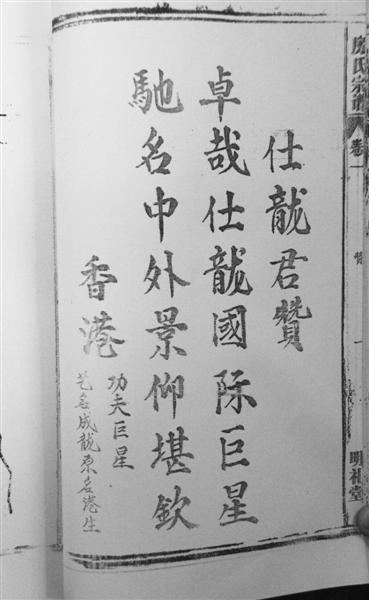 房氏宗
卷一
明礼堂
仕龍君贊
卓哉仕龍國际巨星
馳名中外景仰堪欽
香港
功夫巨星
艺名成龍原名港生